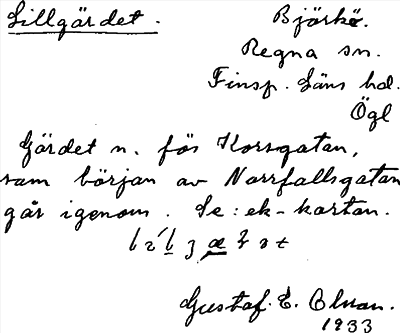 Lillgärdet.
Björkö.
Regna sn.
Finsp. Läns hd.
Ögl
Gärdet n. för Korsgatan,
som början av Norrfallsgatan
går igenom. Se: ek-kartan.
Gustaf. E.
1933